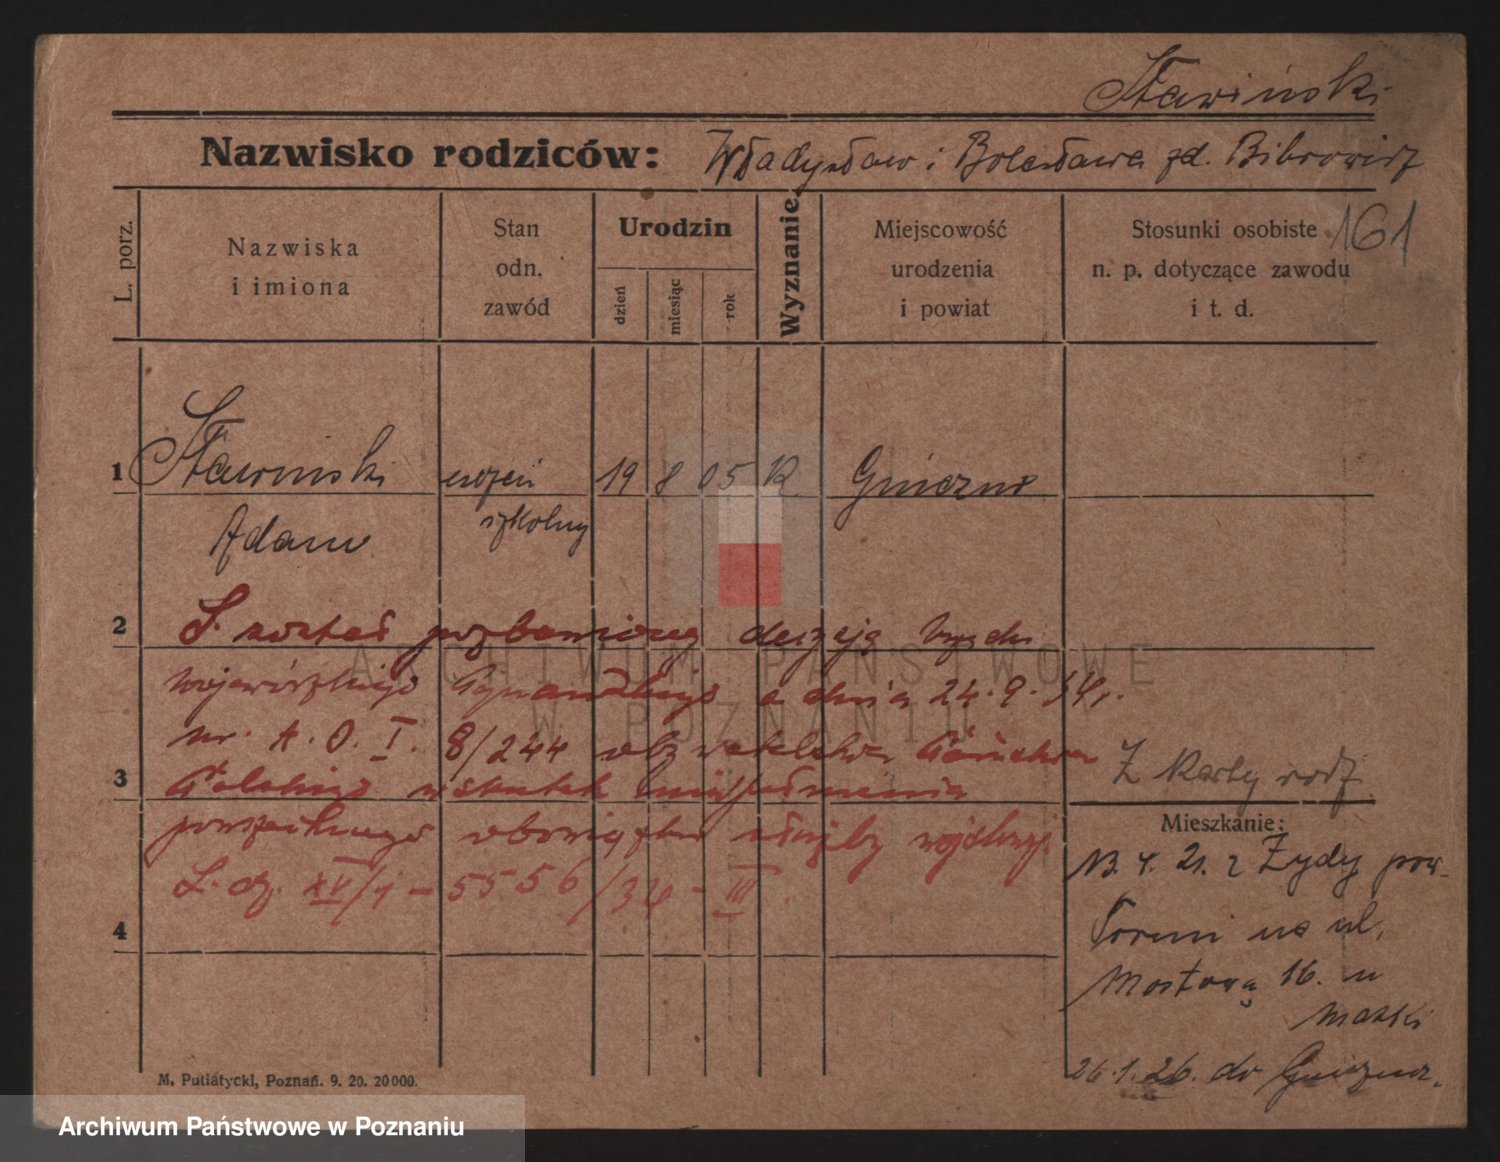 Sławiński
Nazwisko rodziców: Władysław i Bolesława zd. Bibrowicz
161
L. porz.
Nazwiska
i imiona
Stan
odn.
zawód
Urodzin
dzień
miesiąc
rok
Wyznanie
Miejscowość
urodzenia
i powiat
Stosunki osobiste
n. p. dotyczące zawodu
i t. d.
1 Sławiński uczeń 19 8 05 R. Gniezno
Adam szkolny
2 S. został pozbawiony decyzją Urzędu
Wojewódzkiego Poznańskiego z dnia 24.9.34r.
nr. A. O. I. 8/244 obywatelstwa Państwa
3 Polskiego wskutek
powszechnego obowiązku służby wojskowej.
L. dz. XV/1 - 5556/34 - III
4
Z karty rodz.
Mieszkanie:
21. z Żydy pow.
Toruń na ul.
Mostową 16. u
matki
26.1.26. do Gniezna.
M. Putiatycki, Poznań. 9. 20. 20000.
ARCHIWUM PAŃSTWOWE
W POZNANIU
Archiwum Państwowe w Poznaniu